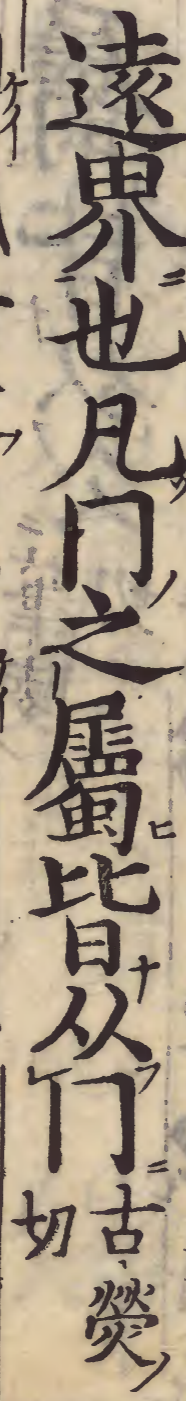 遠界也凡冂之屬皆从冂
古熒
切